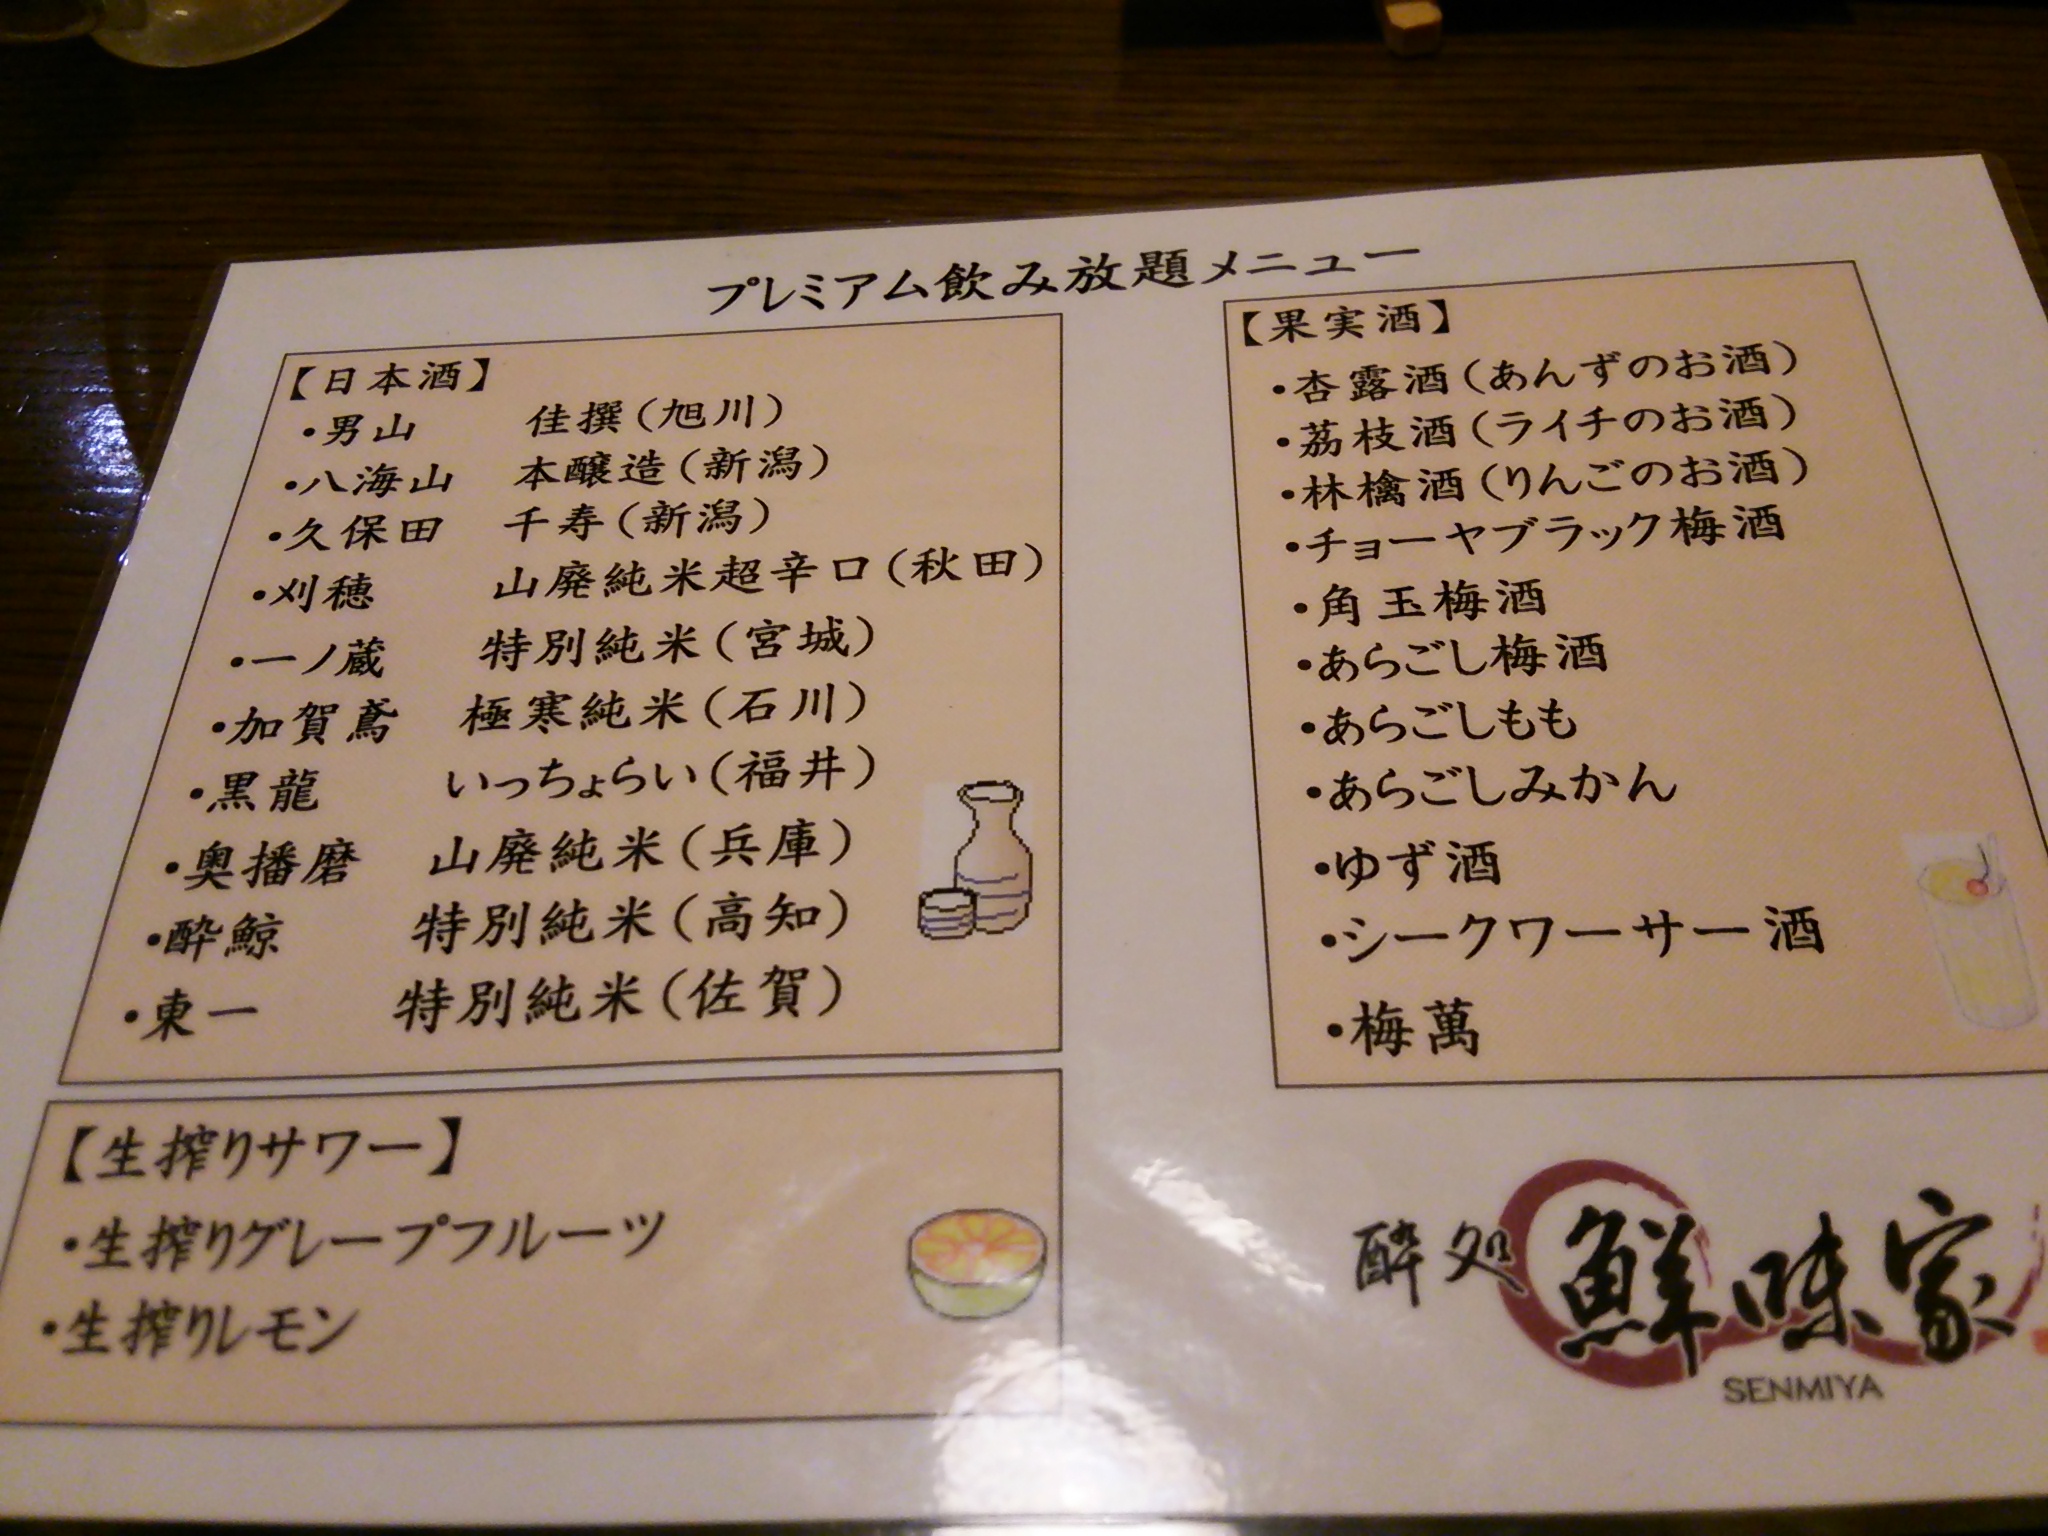 プレミアム飲み放題メニュー
【日本酒】
・男山 佳撰(旭川)
・八海山 本醸造(新潟)
・久保田 千寿(新潟)
・刈穂 山廃純米超辛口(秋田)
・一ノ蔵 特別純米(宮城)
・加賀鳶 極寒純米(石川)
・黒龍 いっちょらい(福井)
・奥播磨 山廃純米(兵庫)
・酔鯨 特別純米(高知)
・東一 特別純米(佐賀)
【生搾りサワー】
・生搾りグレープフルーツ
・生搾りレモン
【果実酒】
・杏露酒(あんずのお酒)
・荔枝酒(ライチのお酒)
・林檎酒(りんごのお酒)
・チョーヤブラック梅酒
・角玉梅酒
・あらごし梅酒
・あらごしもも
・あらごしみかん
・ゆず酒
・シークワーサー酒
・梅萬
酔処 鮮味家
SENMIYA